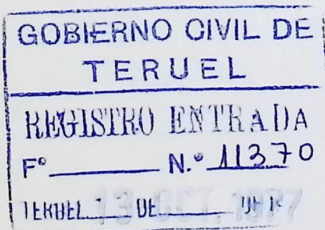 GOBIERNO CIVIL DE
TERUEL
REGISTRO ENTRADA
Fº N.º 11370
TERUEL DE DE 19
13 OCT. 1977